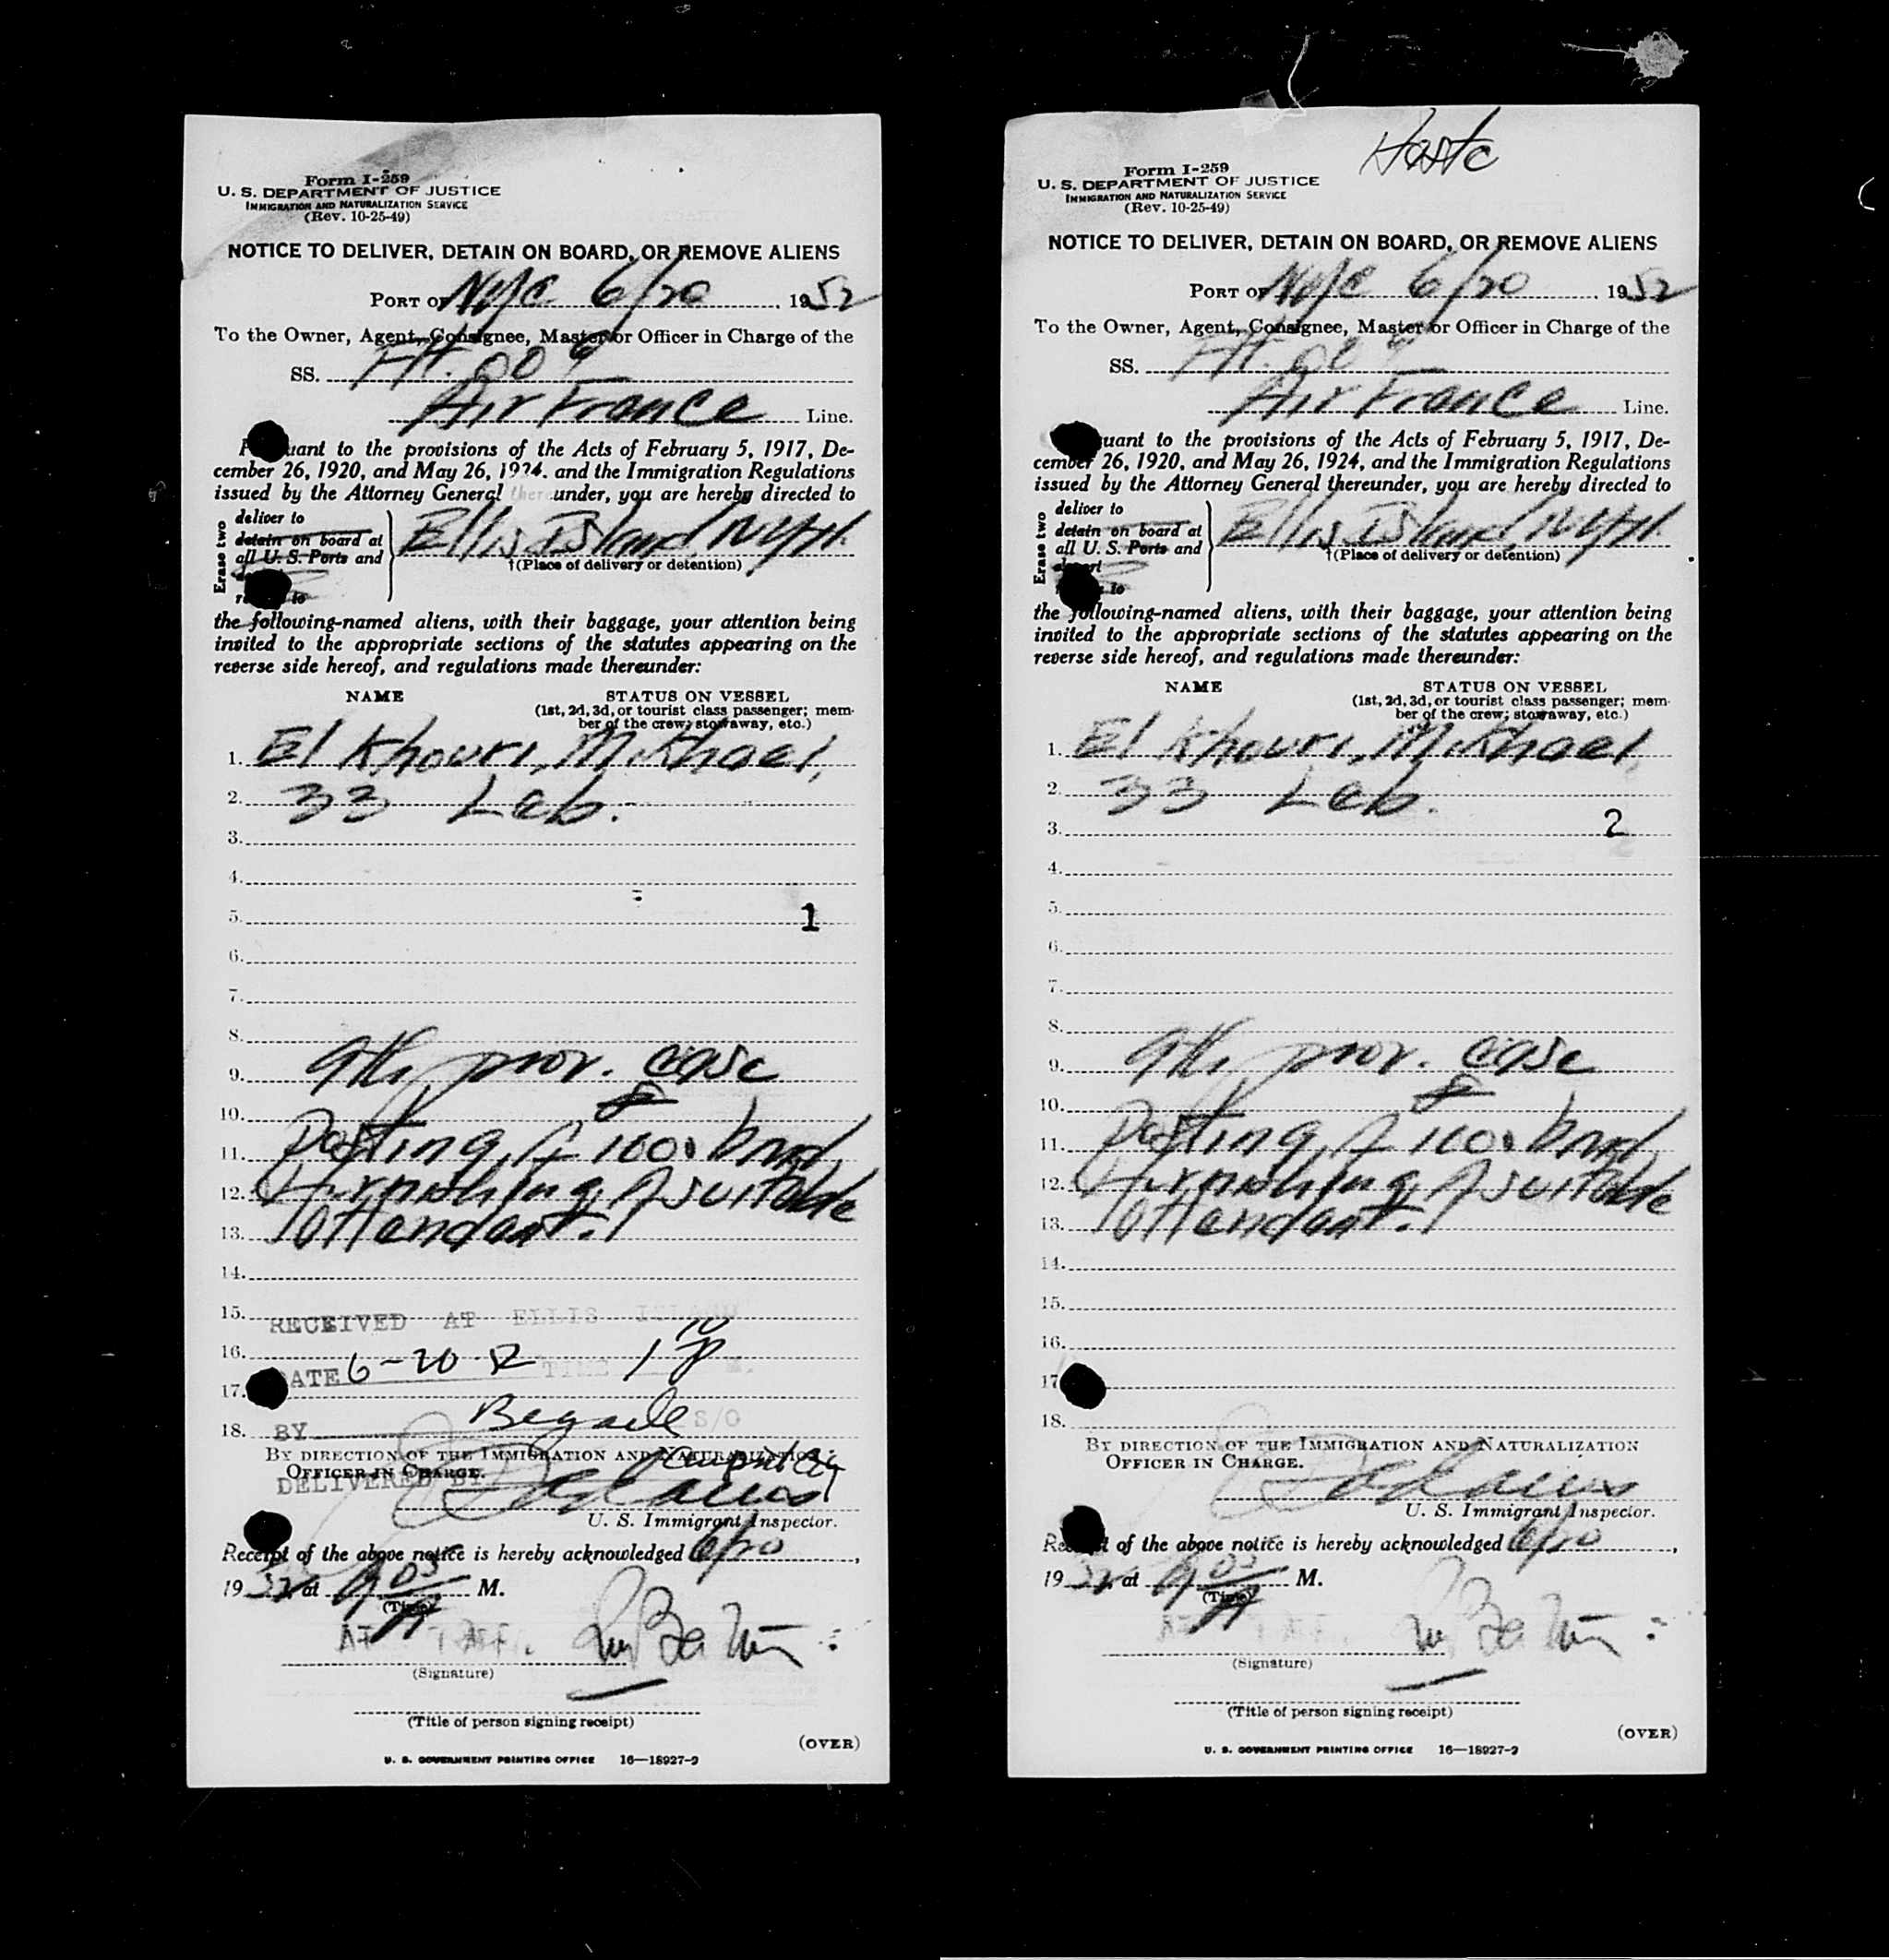 Form I-259
U. S. DEPARTMENT OF JUSTICE
IMMIGRATION AND NATURALIZATION SERVICE
(Rev. 10-25-49)
NOTICE TO DELIVER, DETAIN ON BOARD, OR REMOVE ALIENS
PORT OF NYC 6/20, 1952
To the Owner, Agent, Consignee, Master or Officer in Charge of the
SS. Flt. 009
Air France Line.
uant to the provisions of the Acts of February 5, 1917, De-
cember 26, 1920, and May 26, 1924. and the Immigration Regulations
issued by the Attorney General thereunder, you are hereby directed to
Erase two
deliver to
detain on board at
all U. S. Ports and
to
Ellis Island, NYH.
†(Place of delivery or detention)
the following-named aliens, with their baggage, your attention being
invited to the appropriate sections of the statutes appearing on the
reverse side hereof, and regulations made thereunder:
NAME STATUS ON VESSEL
(1st, 2d, 3d, or tourist class passenger; mem-
ber of the crew; stowaway, etc.)
1. El Khouri, Mikhael,
2. 33 Leb.
3.
4.
5. 1
6.
7.
8.
9. 9th prov. case
10.
11. Posting of 1000 bond
12. furnishing of suitable
13. attendant.
14.
15. RECEIVED AT ELLIS ISLAND
16. DATE 6-20-52 TIME 1 10 P M.
17.
18. BY S/O
BY DIRECTION OF THE IMMIGRATION AND NATURALIZATION
OFFICER IN CHARGE.
DELIVERED BY
U. S. Immigrant Inspector.
Receipt of the above notice is hereby acknowledged 6/20,
1952, at 9 05 A M.
(Time)
(Signature)
(Title of person signing receipt)
(OVER)
U. S. GOVERNMENT PRINTING OFFICE 16—18927-2
Form I-259
U. S. DEPARTMENT OF JUSTICE
IMMIGRATION AND NATURALIZATION SERVICE
(Rev. 10-25-49)
NOTICE TO DELIVER, DETAIN ON BOARD, OR REMOVE ALIENS
PORT OF NYC 6/20, 1952
To the Owner, Agent, Consignee, Master or Officer in Charge of the
SS. Flt. 009
Air France Line.
uant to the provisions of the Acts of February 5, 1917, De-
cember 26, 1920, and May 26, 1924, and the Immigration Regulations
issued by the Attorney General thereunder, you are hereby directed to
Erase two
deliver to
detain on board at
all U. S. Ports and
to
Ellis Island, NYH.
†(Place of delivery or detention)
the following-named aliens, with their baggage, your attention being
invited to the appropriate sections of the statutes appearing on the
reverse side hereof, and regulations made thereunder:
NAME STATUS ON VESSEL
(1st, 2d, 3d, or tourist class passenger; mem-
ber of the crew; stowaway, etc.)
1. El Khouri, Mikhael,
2. 33 Leb.
3. 2
4.
5.
6.
7.
8.
9. 9th prov. case
10.
11. Posting of 1000 bond
12. furnishing of suitable
13. attendant.
14.
15.
16.
17
18.
BY DIRECTION OF THE IMMIGRATION AND NATURALIZATION
OFFICER IN CHARGE.
U. S. Immigrant Inspector.
Receipt of the above notice is hereby acknowledged 6/20,
1952, at 9 05 A M.
(Time)
(Signature)
(Title of person signing receipt)
(OVER)
U. S. GOVERNMENT PRINTING OFFICE 16—18927-2